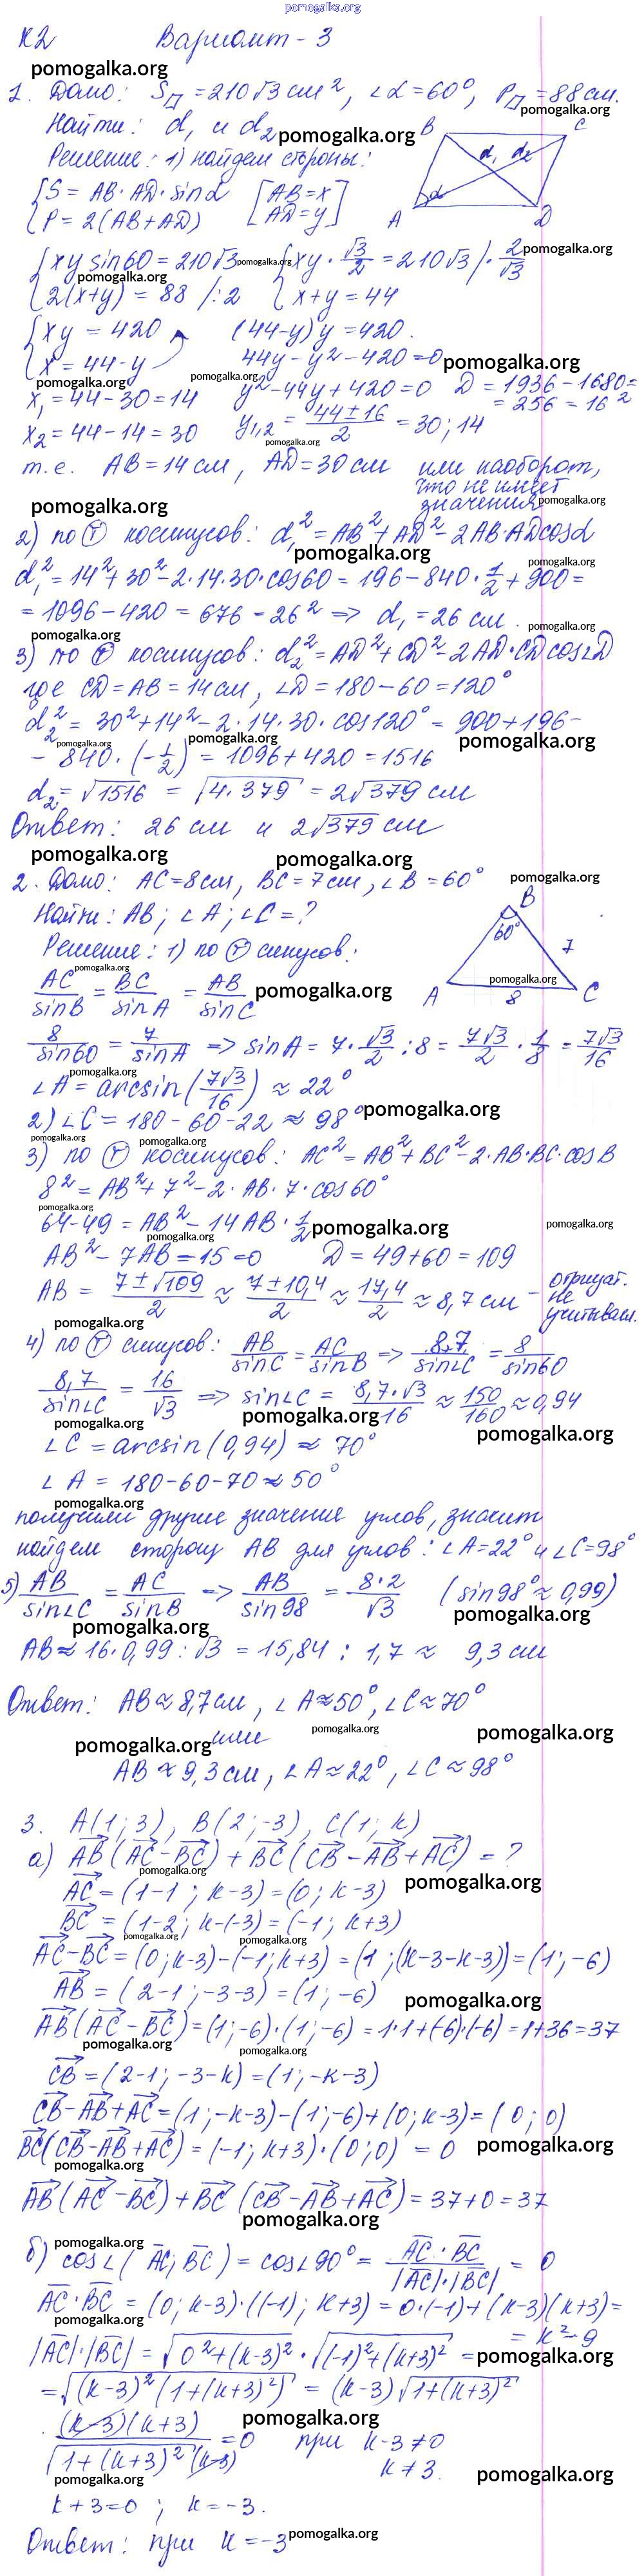 pomogalka.org
К2 Вариант - 3
pomogalka.org
1. Дано: S▱ = 210√3 см², ∠α = 60°, P▱ = 88 см.
pomogalka.org
Найти: d₁ и d₂ pomogalka.org
B C
Решение: 1) найдем стороны:
d₁ d₂
{S = AB · AD · sin α [AB = x
{P = 2(AB + AD) AD = y]
α
A D
{xy sin 60 = 210√3 pomogalka.org {xy · √3/2 = 210√3 / · 2/√3 pomogalka.org
pomogalka.org
{2(x+y) = 88 /:2 {x + y = 44
{xy = 420 (44-y)y = 420.
{x = 44-y 44y - y² - 420 = 0 pomogalka.org
pomogalka.org pomogalka.org
x₁ = 44-30 = 14 y² - 44y + 420 = 0 D = 1936 - 1680 =
= 256 = 16²
x₂ = 44-14 = 30 y₁,₂ = (44 ± 16)/2 = 30; 14
pomogalka.org
т.е. AB = 14 см, AD = 30 см или наоборот,
что не имеет
pomogalka.org значения pomogalka.org
2) по Ⓣ косинусов: d₁² = AB² + AD² - 2AB·AD cos α
pomogalka.org pomogalka.org
d₁² = 14² + 30² - 2·14·30·cos 60 = 196 - 840 · 1/2 + 900 =
= 1096 - 420 = 676 = 26² ⇒ d₁ = 26 см. pomogalka.org
pomogalka.org
3) по Ⓣ косинусов: d₂² = AD² + CD² - 2AD·CD cos∠D
где CD = AB = 14 см, ∠D = 180 - 60 = 120°
d₂² = 30² + 14² - 2·14·30·cos 120° = 900 + 196 -
pomogalka.org pomogalka.org pomogalka.org
- 840 · (-1/2) = 1096 + 420 = 1516
d₂ = √1516 = √4·379 = 2√379 см
Ответ: 26 см и 2√379 см
pomogalka.org pomogalka.org
2. Дано: AC = 8 см, BC = 7 см, ∠B = 60° pomogalka.org
B
Найти: AB; ∠A; ∠C = ?
60°
Решение: 1) по Ⓣ синусов.
7
pomogalka.org pomogalka.org
AC/sin B = BC/sin A = AB/sin C pomogalka.org
A 8 C
8/sin 60 = 7/sin A ⇒ sin A = 7 · √3/2 : 8 = 7√3/2 · 1/8 = 7√3/16
pomogalka.org
∠A = arcsin(7√3/16) ≈ 22°
2) ∠C = 180 - 60 - 22 ≈ 98° pomogalka.org
pomogalka.org pomogalka.org
3) по Ⓣ косинусов: AC² = AB² + BC² - 2·AB·BC·cos B
8² = AB² + 7² - 2·AB·7·cos 60°
pomogalka.org
64 - 49 = AB² - 14AB · 1/2 pomogalka.org pomogalka.org
pomogalka.org
AB² - 7AB - 15 = 0 D = 49 + 60 = 109
AB = (7 ± √109)/2 ≈ (7 ± 10,4)/2 ≈ 17,4/2 ≈ 8,7 см - отрицат.
не
учитываем.
pomogalka.org
4) по Ⓣ синусов: AB/sin C = AC/sin B ⇒ 8,7/sin∠C = 8/sin 60
8,7/sin∠C = 16/√3 ⇒ sin∠C = 8,7·√3/16 ≈ 150/160 ≈ 0,94
pomogalka.org pomogalka.org pomogalka.org
∠C = arcsin(0,94) ≈ 70°
∠A = 180 - 60 - 70 ≈ 50°
pomogalka.org
получили другие значение углов, значит
найдем сторону AB для углов: ∠A = 22° и ∠C = 98°
5) AB/sin∠C = AC/sin B ⇒ AB/sin 98 = 8·2/√3 (sin 98° ≈ 0,99)
pomogalka.org pomogalka.org
AB ≈ 16·0,99 : √3 = 15,84 : 1,7 ≈ 9,3 см
Ответ: AB ≈ 8,7 см, ∠A ≈ 50°, ∠C ≈ 70°
pomogalka.org или pomogalka.org pomogalka.org
AB ≈ 9,3 см, ∠A ≈ 22°, ∠C ≈ 98°
3. A(1; 3), B(2; -3), C(1; k)
а) AB(AC - BC) + BC(CB - AB + AC) = ?
pomogalka.org pomogalka.org
AC = (1-1; k-3) = (0; k-3)
BC = (1-2; k-(-3) = (-1; k+3)
pomogalka.org pomogalka.org
AC - BC = (0; k-3) - (-1; k+3) = (1; (k-3-k-3)) = (1; -6)
AB = (2-1; -3-3) = (1; -6) pomogalka.org
AB(AC - BC) = (1; -6)·(1; -6) = 1·1 + (-6)·(-6) = 1 + 36 = 37
pomogalka.org pomogalka.org
CB = (2-1; -3-k) = (1; -k-3)
CB - AB + AC = (1; -k-3) - (1; -6) + (0; k-3) = (0; 0)
BC(CB - AB + AC) = (-1; k+3)·(0; 0) = 0 pomogalka.org
pomogalka.org
AB(AC - BC) + BC(CB - AB + AC) = 37 + 0 = 37
pomogalka.org
pomogalka.org
б) cos∠(AC; BC) = cos∠90° = AC · BC/|AC|·|BC| = 0
AC · BC = (0; k-3)·((-1); k+3) = 0·(-1) + (k-3)(k+3) =
= k² - 9
pomogalka.org
|AC|·|BC| = √0² + (k-3)² · √(-1)² + (k+3)² = pomogalka.org
= √(k-3)²(1 + (k+3)²) = (k-3)√1 + (k+3)²
pomogalka.org
(k-3)(k+3)/√1 + (k+3)² (k-3) = 0 при k - 3 ≠ 0
k ≠ 3.
pomogalka.org pomogalka.org
k + 3 = 0; k = -3.
Ответ: при k = -3 pomogalka.org